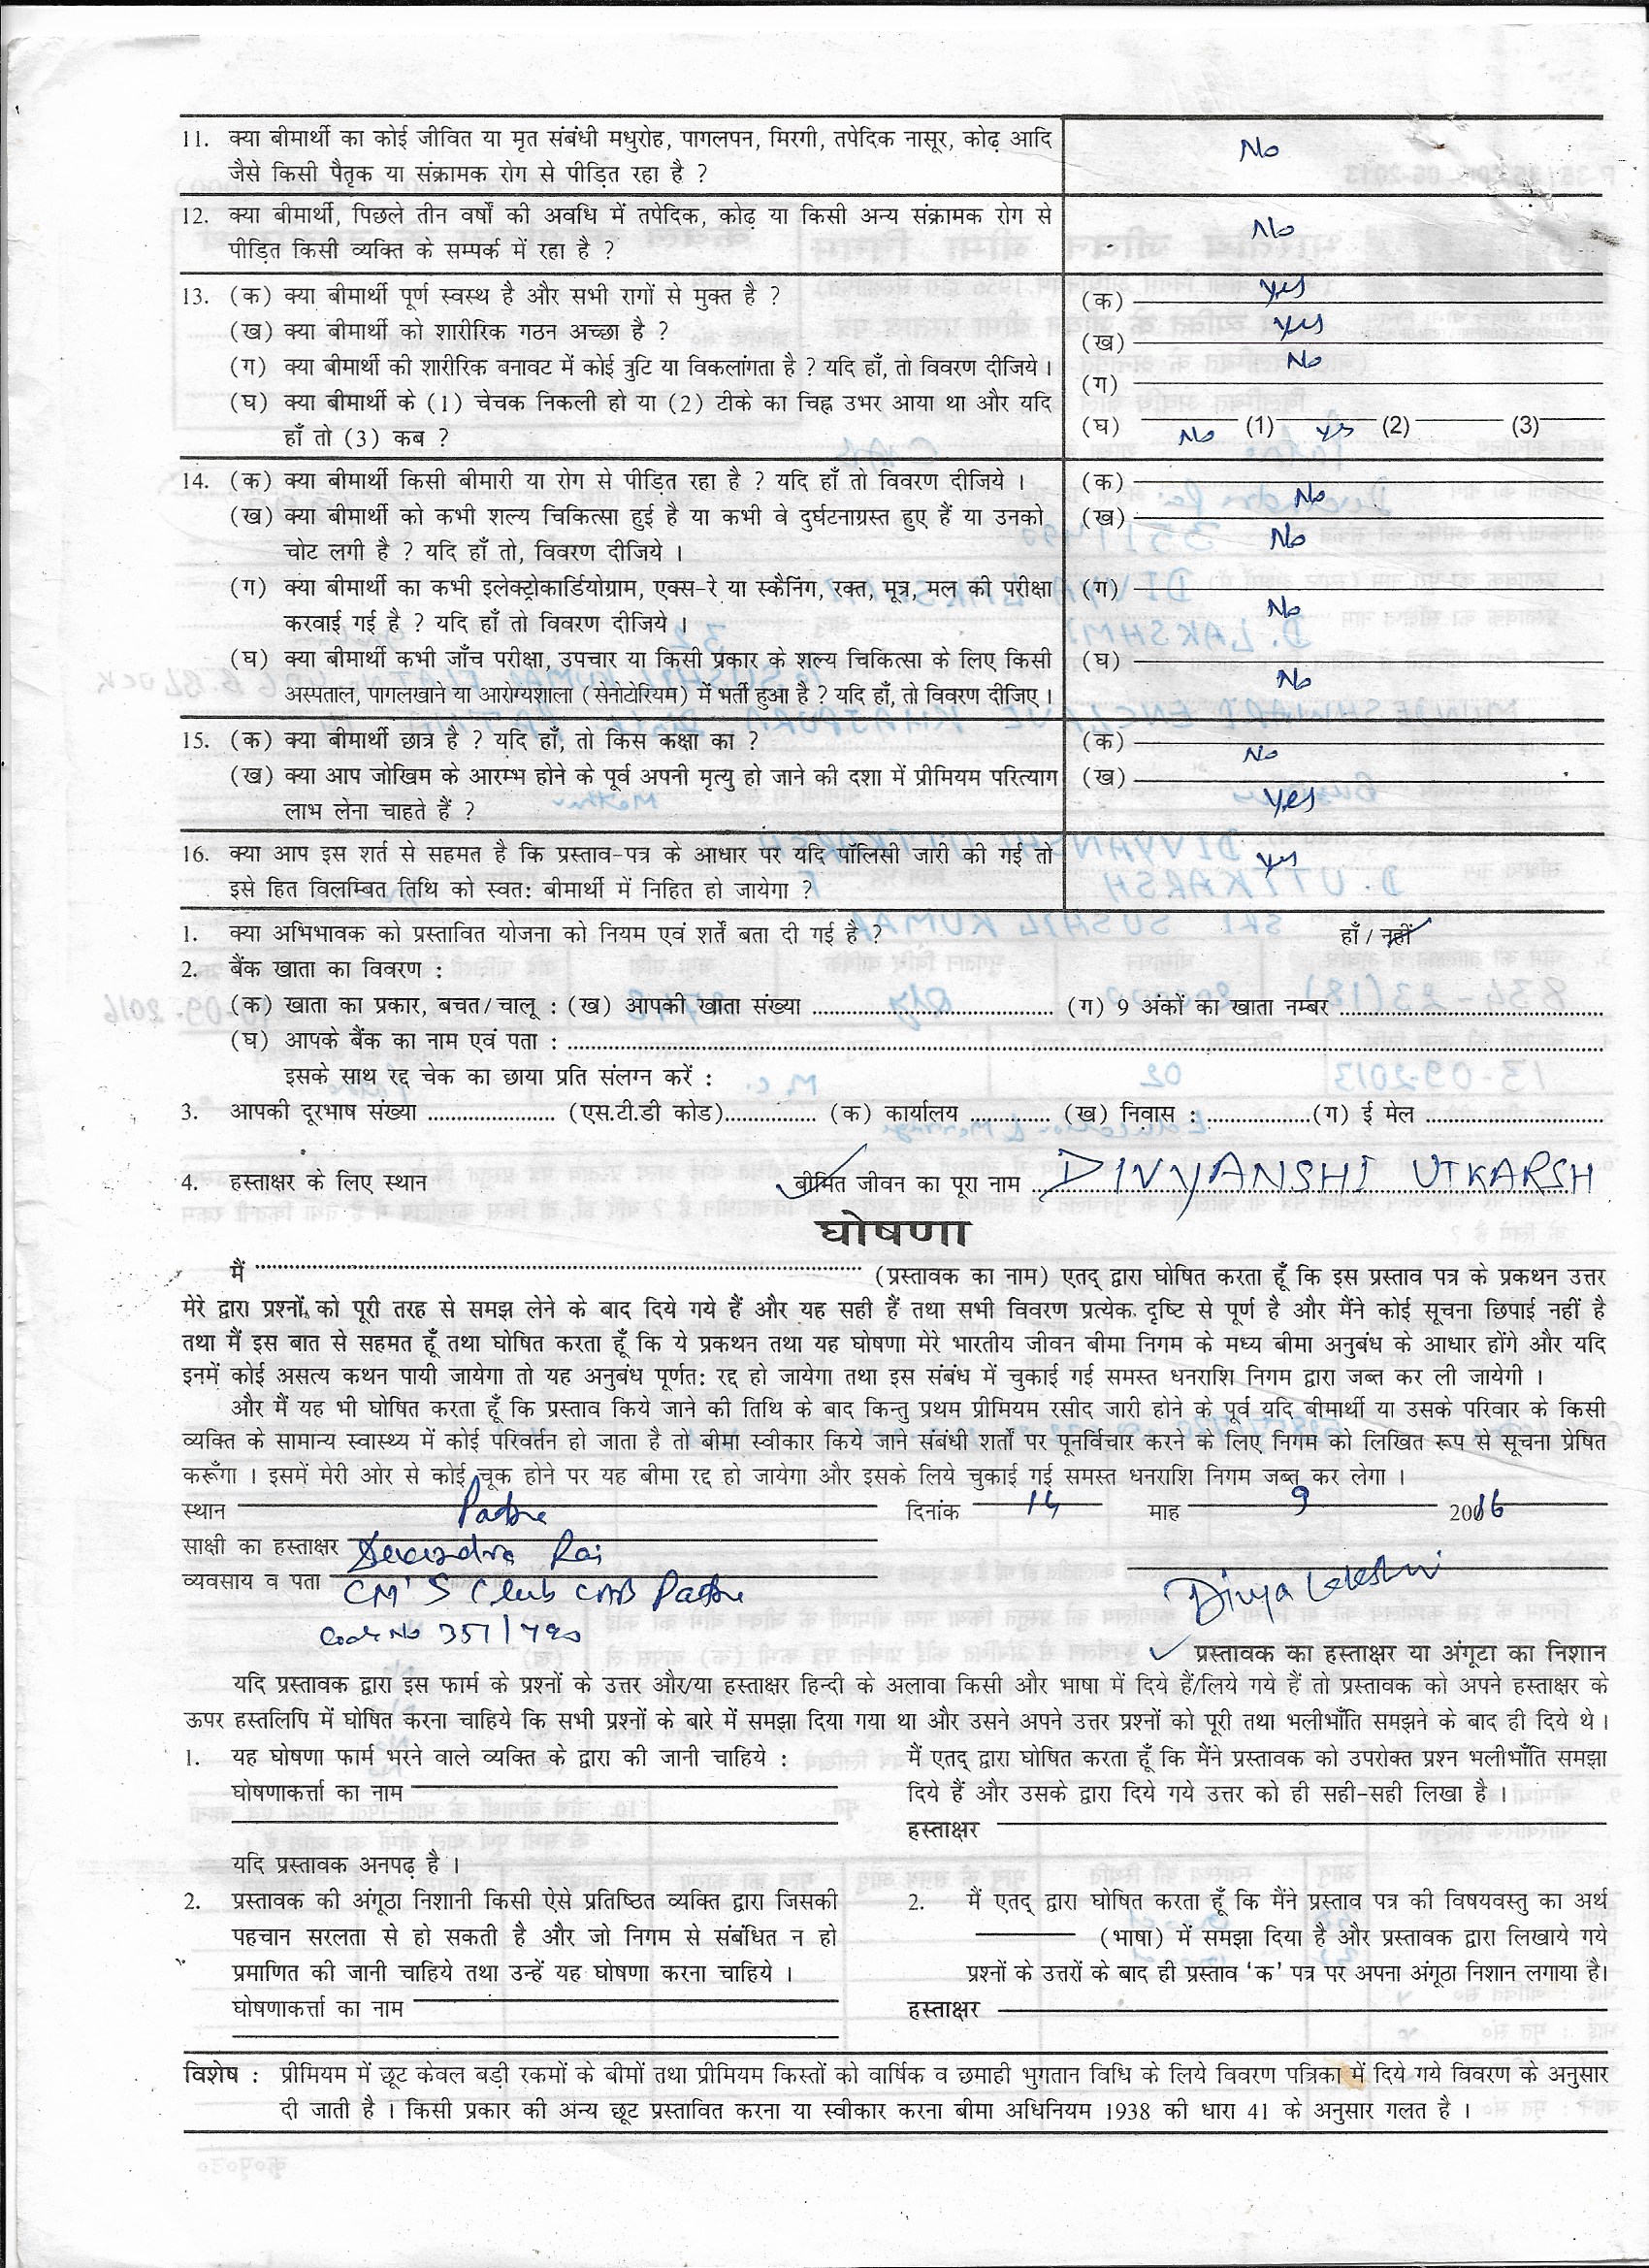 11. क्या बीमार्थी का कोई जीवित या मृत संबंधी मधुरोह, पागलपन, मिरगी, तपेदिक नासूर, कोढ़ आदि
जैसे किसी पैतृक या संक्रामक रोग से पीड़ित रहा है ?
No
12. क्या बीमार्थी, पिछले तीन वर्षों की अवधि में तपेदिक, कोढ़ या किसी अन्य संक्रामक रोग से
पीड़ित किसी व्यक्ति के सम्पर्क में रहा है ?
No
13. (क) क्या बीमार्थी पूर्ण स्वस्थ है और सभी रागों से मुक्त है ? (क) Yes
(ख) क्या बीमार्थी को शारीरिक गठन अच्छा है ? (ख) Yes
(ग) क्या बीमार्थी की शारीरिक बनावट में कोई त्रुटि या विकलांगता है ? यदि हाँ, तो विवरण दीजिये । (ग) No
(घ) क्या बीमार्थी के (1) चेचक निकली हो या (2) टीके का चिह्न उभर आया था और यदि
हाँ तो (3) कब ? (घ) No (1) Yes (2) (3)
14. (क) क्या बीमार्थी किसी बीमारी या रोग से पीड़ित रहा है ? यदि हाँ तो विवरण दीजिये । (क) No
(ख) क्या बीमार्थी को कभी शल्य चिकित्सा हुई है या कभी वे दुर्घटनाग्रस्त हुए हैं या उनको (ख) No
चोट लगी है ? यदि हाँ तो, विवरण दीजिये ।
(ग) क्या बीमार्थी का कभी इलेक्ट्रोकार्डियोग्राम, एक्स-रे या स्कैनिंग, रक्त, मूत्र, मल की परीक्षा (ग) No
करवाई गई है ? यदि हाँ तो विवरण दीजिये ।
(घ) क्या बीमार्थी कभी जाँच परीक्षा, उपचार या किसी प्रकार के शल्य चिकित्सा के लिए किसी (घ) No
अस्पताल, पागलखाने या आरोग्यशाला (सेनोटोरियम) में भर्ती हुआ है ? यदि हाँ, तो विवरण दीजिए ।
15. (क) क्या बीमार्थी छात्र है ? यदि हाँ, तो किस कक्षा का ? (क) No
(ख) क्या आप जोखिम के आरम्भ होने के पूर्व अपनी मृत्यु हो जाने की दशा में प्रीमियम परित्याग (ख) Yes
लाभ लेना चाहते हैं ?
16. क्या आप इस शर्त से सहमत है कि प्रस्ताव-पत्र के आधार पर यदि पॉलिसी जारी की गई तो Yes
इसे हित विलम्बित तिथि को स्वत: बीमार्थी में निहित हो जायेगा ?
1. क्या अभिभावक को प्रस्तावित योजना को नियम एवं शर्तें बता दी गई है ? हाँ / नहीं
2. बैंक खाता का विवरण :
(क) खाता का प्रकार, बचत/चालू : (ख) आपकी खाता संख्या (ग) 9 अंकों का खाता नम्बर
(घ) आपके बैंक का नाम एवं पता :
इसके साथ रद्द चेक का छाया प्रति संलग्न करें :
3. आपकी दूरभाष संख्या (एस.टी.डी कोड) (क) कार्यालय (ख) निवास : (ग) ई मेल
4. हस्ताक्षर के लिए स्थान बीमित जीवन का पूरा नाम DIVYANSHI UTKARSH
घोषणा
मैं (प्रस्तावक का नाम) एतद् द्वारा घोषित करता हूँ कि इस प्रस्ताव पत्र के प्रकथन उत्तर
मेरे द्वारा प्रश्नों को पूरी तरह से समझ लेने के बाद दिये गये हैं और यह सही हैं तथा सभी विवरण प्रत्येक दृष्टि से पूर्ण है और मैंने कोई सूचना छिपाई नहीं है
तथा मैं इस बात से सहमत हूँ तथा घोषित करता हूँ कि ये प्रकथन तथा यह घोषणा मेरे भारतीय जीवन बीमा निगम के मध्य बीमा अनुबंध के आधार होंगे और यदि
इनमें कोई असत्य कथन पायी जायेगा तो यह अनुबंध पूर्णत: रद्द हो जायेगा तथा इस संबंध में चुकाई गई समस्त धनराशि निगम द्वारा जब्त कर ली जायेगी ।
और मैं यह भी घोषित करता हूँ कि प्रस्ताव किये जाने की तिथि के बाद किन्तु प्रथम प्रीमियम रसीद जारी होने के पूर्व यदि बीमार्थी या उसके परिवार के किसी
व्यक्ति के सामान्य स्वास्थ्य में कोई परिवर्तन हो जाता है तो बीमा स्वीकार किये जाने संबंधी शर्तों पर पूनर्विचार करने के लिए निगम को लिखित रूप से सूचना प्रेषित
करूँगा । इसमें मेरी ओर से कोई चूक होने पर यह बीमा रद्द हो जायेगा और इसके लिये चुकाई गई समस्त धनराशि निगम जब्त कर लेगा ।
स्थान Patna दिनांक 14 माह 9 2016
साक्षी का हस्ताक्षर Devendra Rai
व्यवसाय व पता CM'S Club CAB Patna
Code No 351/490
Divya Lakshmi
प्रस्तावक का हस्ताक्षर या अंगूटा का निशान
यदि प्रस्तावक द्वारा इस फार्म के प्रश्नों के उत्तर और/या हस्ताक्षर हिन्दी के अलावा किसी और भाषा में दिये हैं/लिये गये हैं तो प्रस्तावक को अपने हस्ताक्षर के
ऊपर हस्तलिपि में घोषित करना चाहिये कि सभी प्रश्नों के बारे में समझा दिया गया था और उसने अपने उत्तर प्रश्नों को पूरी तथा भलीभाँति समझने के बाद ही दिये थे ।
1. यह घोषणा फार्म भरने वाले व्यक्ति के द्वारा की जानी चाहिये : मैं एतद् द्वारा घोषित करता हूँ कि मैंने प्रस्तावक को उपरोक्त प्रश्न भलीभाँति समझा
घोषणाकर्त्ता का नाम दिये हैं और उसके द्वारा दिये गये उत्तर को ही सही-सही लिखा है ।
हस्ताक्षर
यदि प्रस्तावक अनपढ़ है ।
2. प्रस्तावक की अंगूठा निशानी किसी ऐसे प्रतिष्ठित व्यक्ति द्वारा जिसकी 2. मैं एतद् द्वारा घोषित करता हूँ कि मैंने प्रस्ताव पत्र की विषयवस्तु का अर्थ
पहचान सरलता से हो सकती है और जो निगम से संबंधित न हो (भाषा) में समझा दिया है और प्रस्तावक द्वारा लिखाये गये
प्रमाणित की जानी चाहिये तथा उन्हें यह घोषणा करना चाहिये । प्रश्नों के उत्तरों के बाद ही प्रस्ताव 'क' पत्र पर अपना अंगूठा निशान लगाया है।
घोषणाकर्त्ता का नाम हस्ताक्षर
विशेष : प्रीमियम में छूट केवल बड़ी रकमों के बीमों तथा प्रीमियम किस्तों को वार्षिक व छमाही भुगतान विधि के लिये विवरण पत्रिका में दिये गये विवरण के अनुसार
दी जाती है । किसी प्रकार की अन्य छूट प्रस्तावित करना या स्वीकार करना बीमा अधिनियम 1938 की धारा 41 के अनुसार गलत है ।